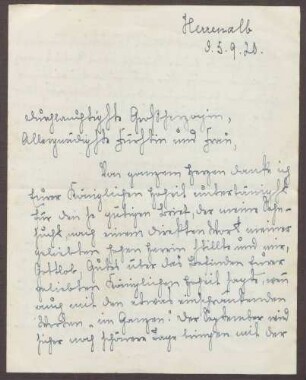 Herrenalb
d. 5. 9. 20.
Durchlauchtigste Großherzogin,
Allergnädigste Fürstin und Frau,
Von ganzem Herzen danke ich
Eurer Königlichen Hoheit untertänigst
für den so gütigen Brief, der meine Sehn-
sucht, nach einem direkten Wort meiner
geliebten hohen Herrin stillt und mir,
Gottlob, Gutes über das Befinden Eurer
geliebten Königlichen Hoheit sagt, wenn
auch mit den etwas einschränkenden
Worten "im Ganzen". Der September wird
sicher noch schönere Tage bringen mit der